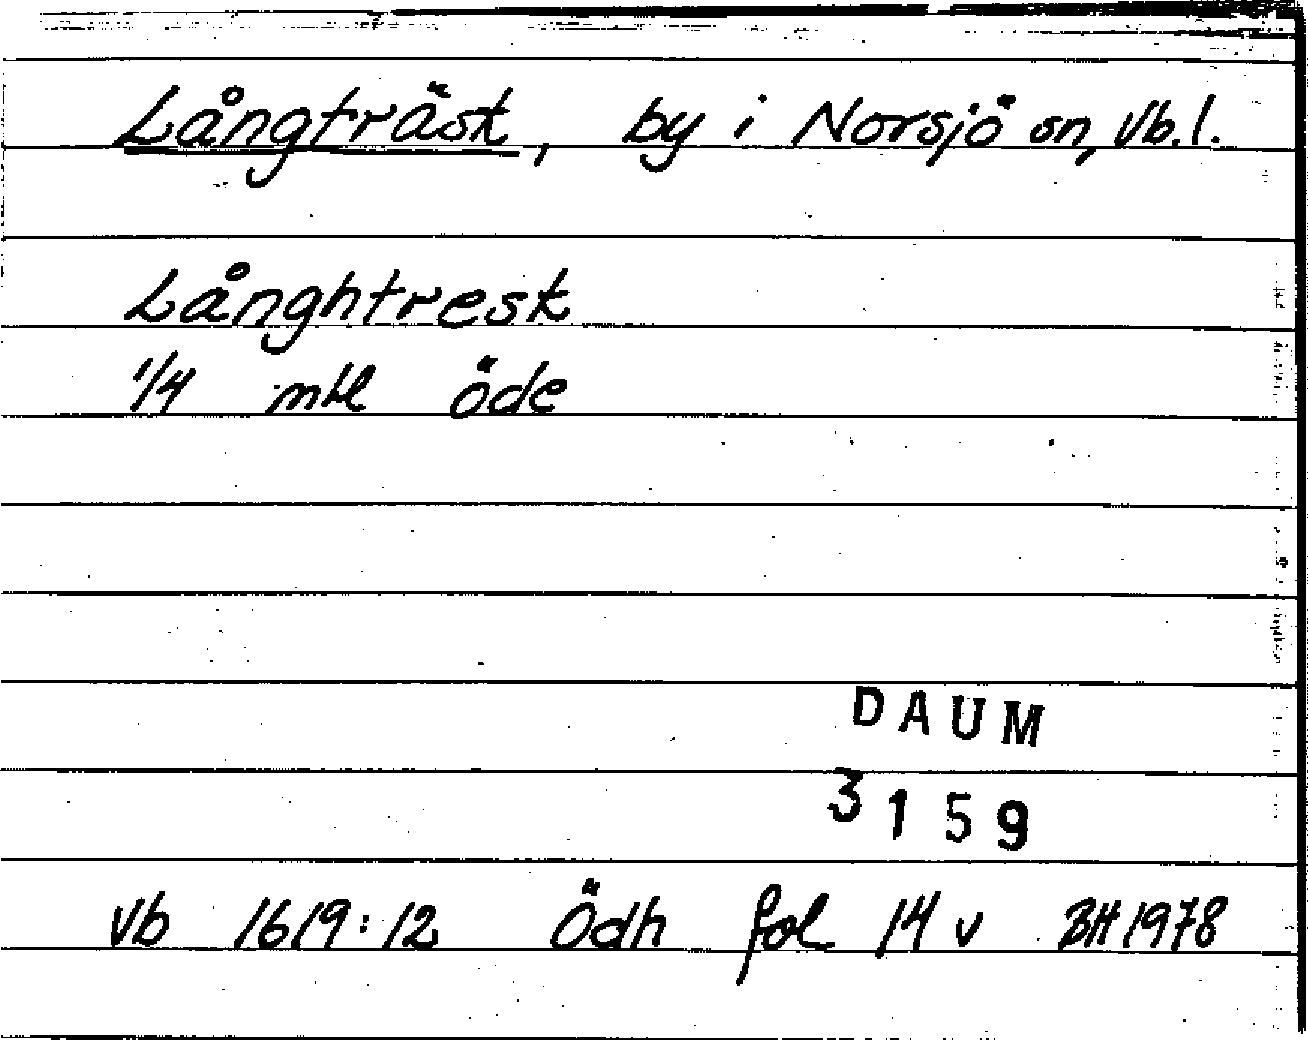 Långträsk, by i Norsjö sn, Vb.l.
Långhtresk
1/4 mtl öde
DAUM
3159
Vb 1619:12 Ödh fol 14 v BH 1978